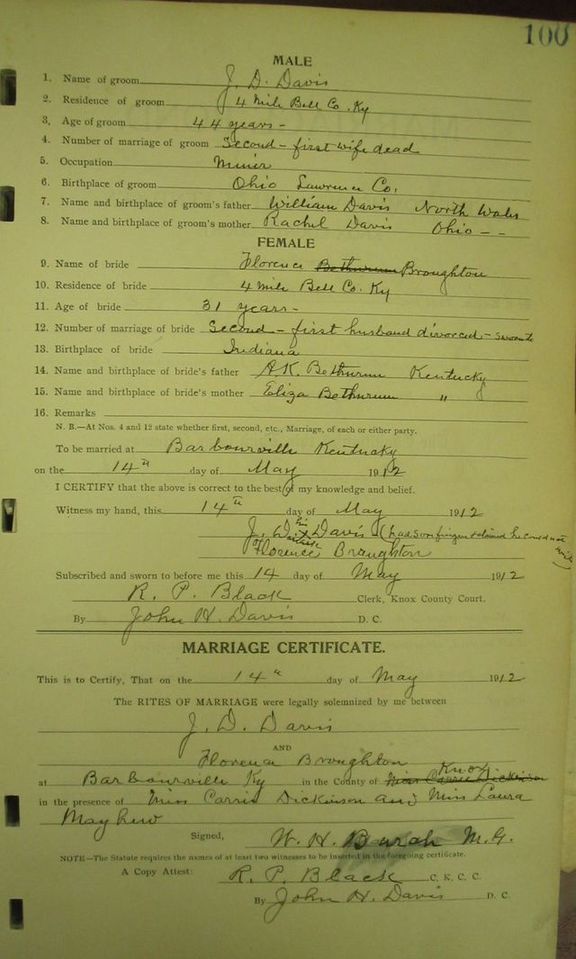 100
MALE
1. Name of groom J. D. Davis
2. Residence of groom 4 Mile Bell Co. Ky
3. Age of groom 44 years -
4. Number of marriage of groom Second - first wife dead
5. Occupation Miner
6. Birthplace of groom Ohio Lawrence Co.
7. Name and birthplace of groom's father William Davis North Wales
8. Name and birthplace of groom's mother Rachel Davis Ohio - -
FEMALE
9. Name of bride Florence Bethurum Broughton
10. Residence of bride 4 Mile Bell Co. Ky
11. Age of bride 31 years -
12. Number of marriage of bride Second - first husband divorced -
13. Birthplace of bride Indiana
14. Name and birthplace of bride's father A.K. Bethurum Kentucky
15. Name and birthplace of bride's mother Eliza Bethurum "
16. Remarks
N. B.—At Nos. 4 and 12 state whether first, second, etc., Marriage, of each or either party.
To be married at Barbourville Kentucky
on the 14th day of May 1912
I CERTIFY that the above is correct to the best of my knowledge and belief.
Witness my hand, this 14th day of May 1912
J. D. Davis (had sore finger & claimed he could not write)
Florence Broughton
Subscribed and sworn to before me this 14 day of May 1912
R. P. Black Clerk, Knox County Court.
By John H. Davis D. C.
MARRIAGE CERTIFICATE.
This is to Certify, That on the 14th day of May 1912
The RITES OF MARRIAGE were legally solemnized by me between
J. D. Davis
AND
Florence Broughton
at Barbourville Ky in the County of Miss Carrie Dickinson Knox
in the presence of Miss Carrie Dickinson and Miss Laura
Mayhew
Signed, W. H. M. G.
NOTE—The Statute requires the names of at least two witnesses to be inserted in the foregoing certificate.
A Copy Attest: R. P. Black C. K. C. C.
By John H. Davis D. C.